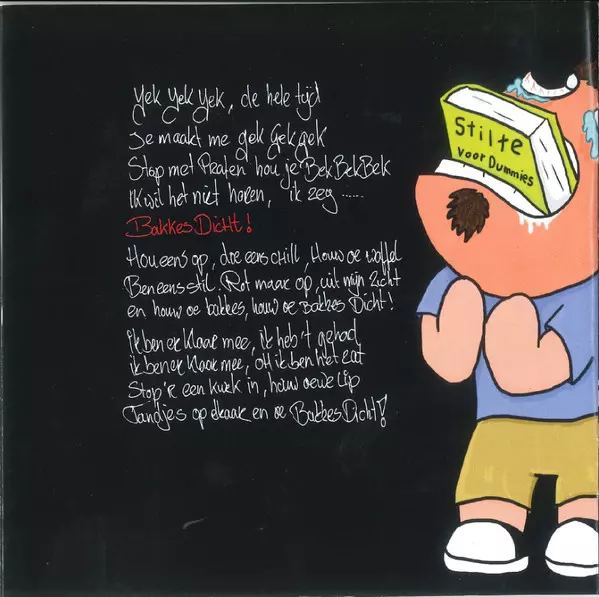 Yek Yek Yek, de hele tijd
Je maakt me gek gek gek
Stop met Praten hou je Bek Bek Bek
Ik wil het niet horen, ik zeg ......
Bakkes Dicht!
Hou eens op, doe eens chill, Houw oe waffel
Ben eens stil. Rot maar op, uit mijn zicht
en houw oe bakkes, houw oe Bakkes Dicht!
ik ben er klaar mee, ik heb 't gehad
ik ben er klaar mee, oh ik ben het zat
Stop'r een kurk in, houw oewe lip
Tandjes op elkaar en oe Bakkes Dicht!
Stilte
voor Dummies